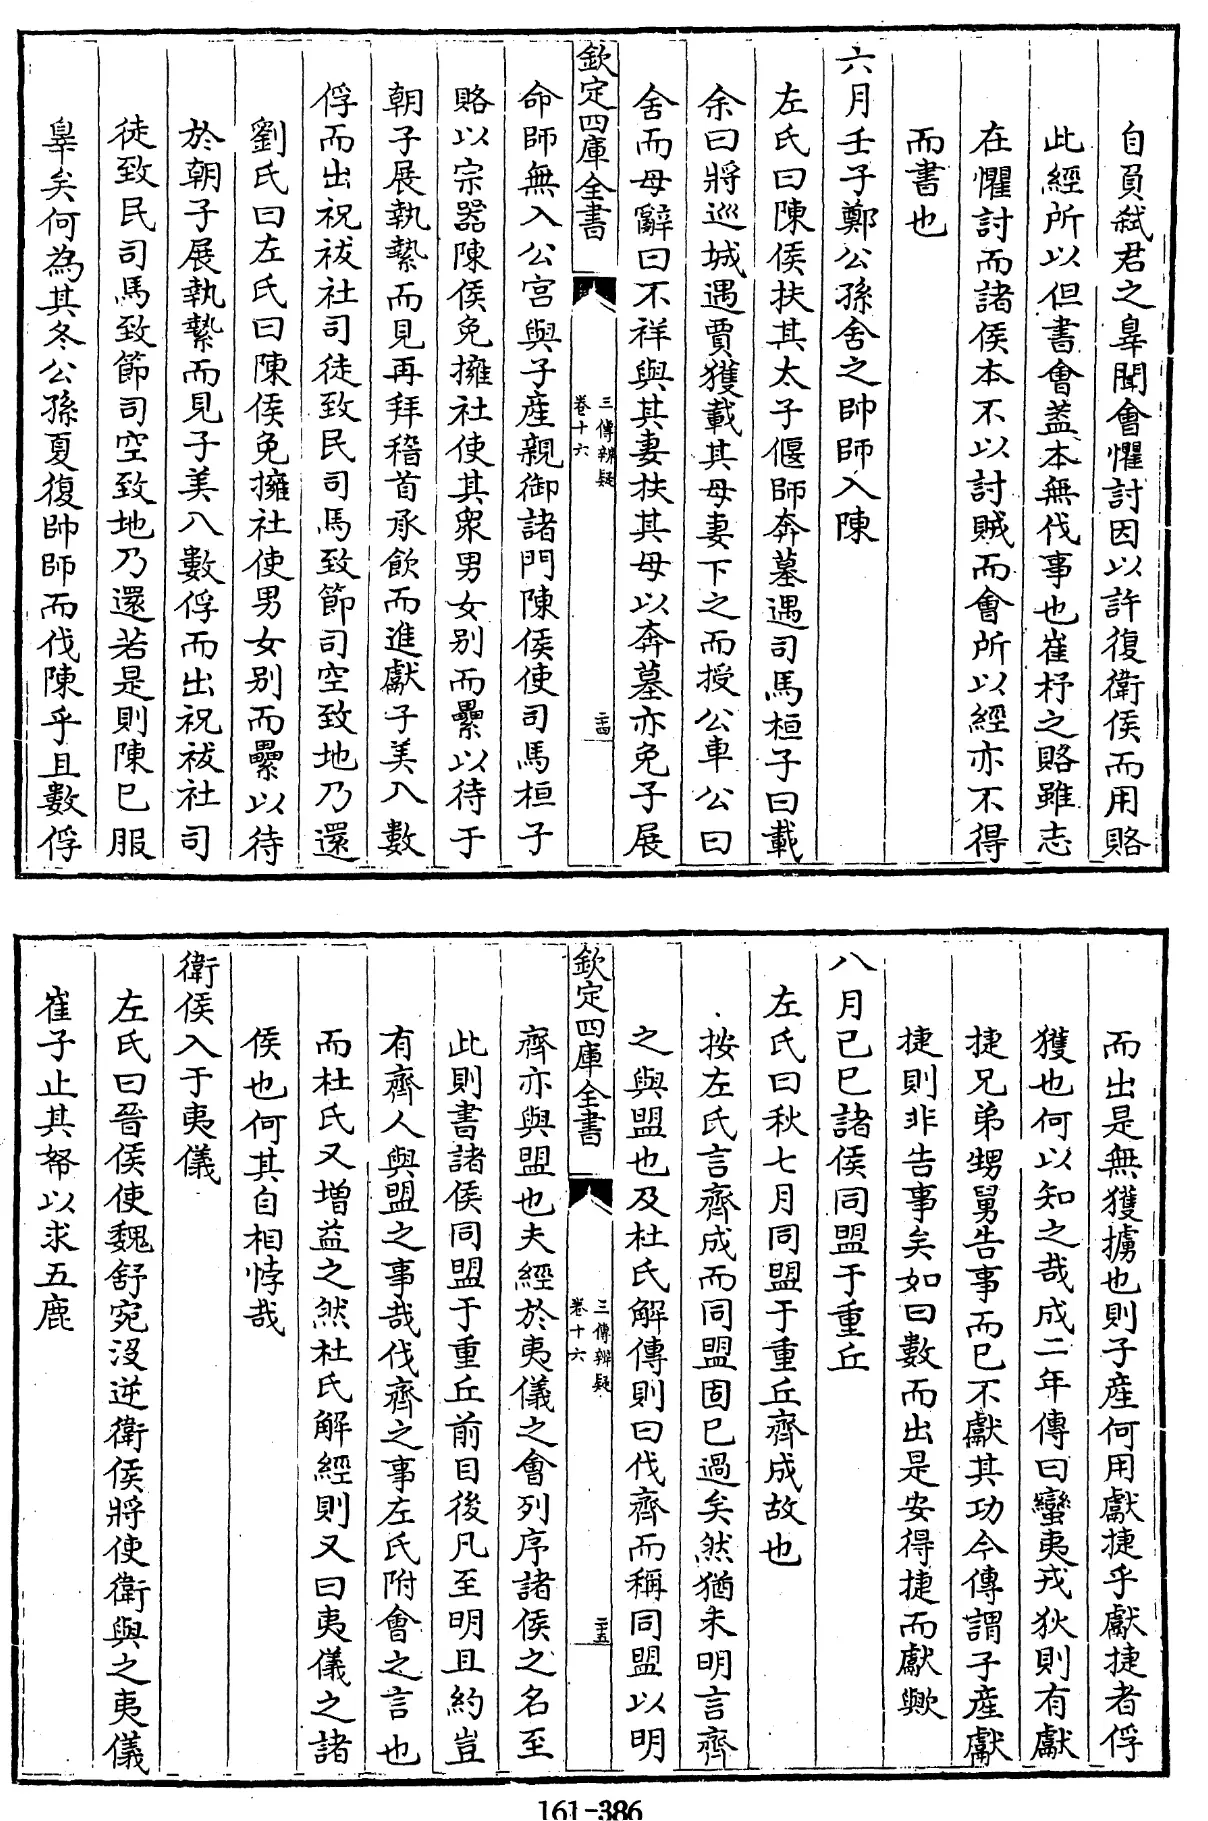 自負弑君之辠聞會懼討因以許復衛侯而用賂
此經所以但書會蓋本無伐事也崔杼之賂雖志
在懼討而諸侯本不以討賊而會所以經亦不得
而書也
六月壬子鄭公孫舍之帥師入陳
左氏曰陳侯扶其太子偃師奔墓遇司馬桓子曰載
余曰將巡城遇賈獲載其母妻下之而授公車公曰
舍而母辭曰不祥與其妻扶其母以奔墓亦免子展
欽定四庫全書
三傳辨疑
卷十六
二十四
命師無入公宮與子產親御諸門陳侯使司馬桓子
賂以宗器陳侯免擁社使其衆男女别而纍以待于
朝子展執縶而見再拜稽首承飲而進獻子美入數
俘而出祝祓社司徒致民司馬致節司空致地乃還
劉氏曰左氏曰陳侯免擁社使男女别而纍以待
於朝子展執縶而見子美入數俘而出祝祓社司
徒致民司馬致節司空致地乃還若是則陳已服
辠矣何為其冬公孫夏復帥師而伐陳乎且數俘
而出是無獲擄也則子產何用獻捷乎獻捷者俘
獲也何以知之哉成二年傳曰蠻夷戎狄則有獻
捷兄弟甥舅告事而已不獻其功今傳謂子產獻
捷則非告事矣如曰數而出是安得捷而獻歟
八月己巳諸侯同盟于重丘
左氏曰秋七月同盟于重丘齊成故也
按左氏言齊成而同盟固已過矣然猶未明言齊
之與盟也及杜氏解傳則曰伐齊而稱同盟以明
欽定四庫全書
三傳辨疑
卷十六
二十五
齊亦與盟也夫經於夷儀之會列序諸侯之名至
此則書諸侯同盟于重丘前目後凡至明且約豈
有齊人與盟之事哉伐齊之事左氏附會之言也
而杜氏又增益之然杜氏解經則又曰夷儀之諸
侯也何其自相悖哉
衛侯入于夷儀
左氏曰晉侯使魏舒宛沒逆衛侯將使衛與之夷儀
崔子止其帑以求五鹿
161-386